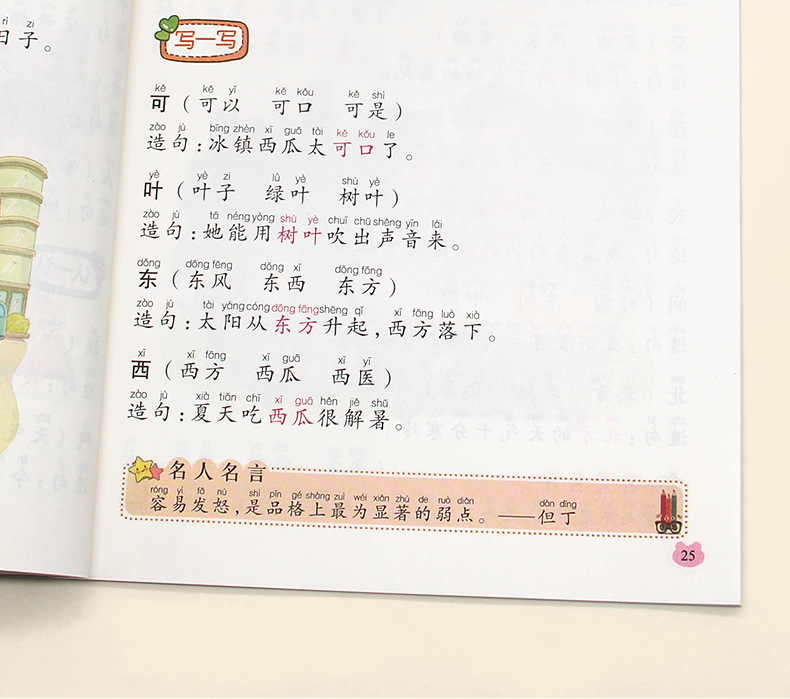 rì zi
日子。
写一写
kě kě yǐ kě kǒu kě shì
可（可以 可口 可是）
zào jù bīng zhèn xī guā tài kě kǒu le
造句：冰镇西瓜太可口了。
yè yè zi lǜ yè shù yè
叶（叶子 绿叶 树叶）
zào jù tā néng yòng shù yè chuī chū shēng yīn lái
造句：她能用树叶吹出声音来。
dōng dōng fēng dōng xī dōng fāng
东（东风 东西 东方）
zào jù tài yáng cóng dōng fāng shēng qǐ xī fāng luò xià
造句：太阳从东方升起，西方落下。
xī xī fāng xī guā xī yī
西（西方 西瓜 西医）
zào jù xià tiān chī xī guā hěn jiě shǔ
造句：夏天吃西瓜很解暑。
名人名言
róng yì fā nù shì pǐn gé shàng zuì wéi xiǎn zhù de ruò diǎn dàn dīng
容易发怒，是品格上最为显著的弱点。——但丁
25